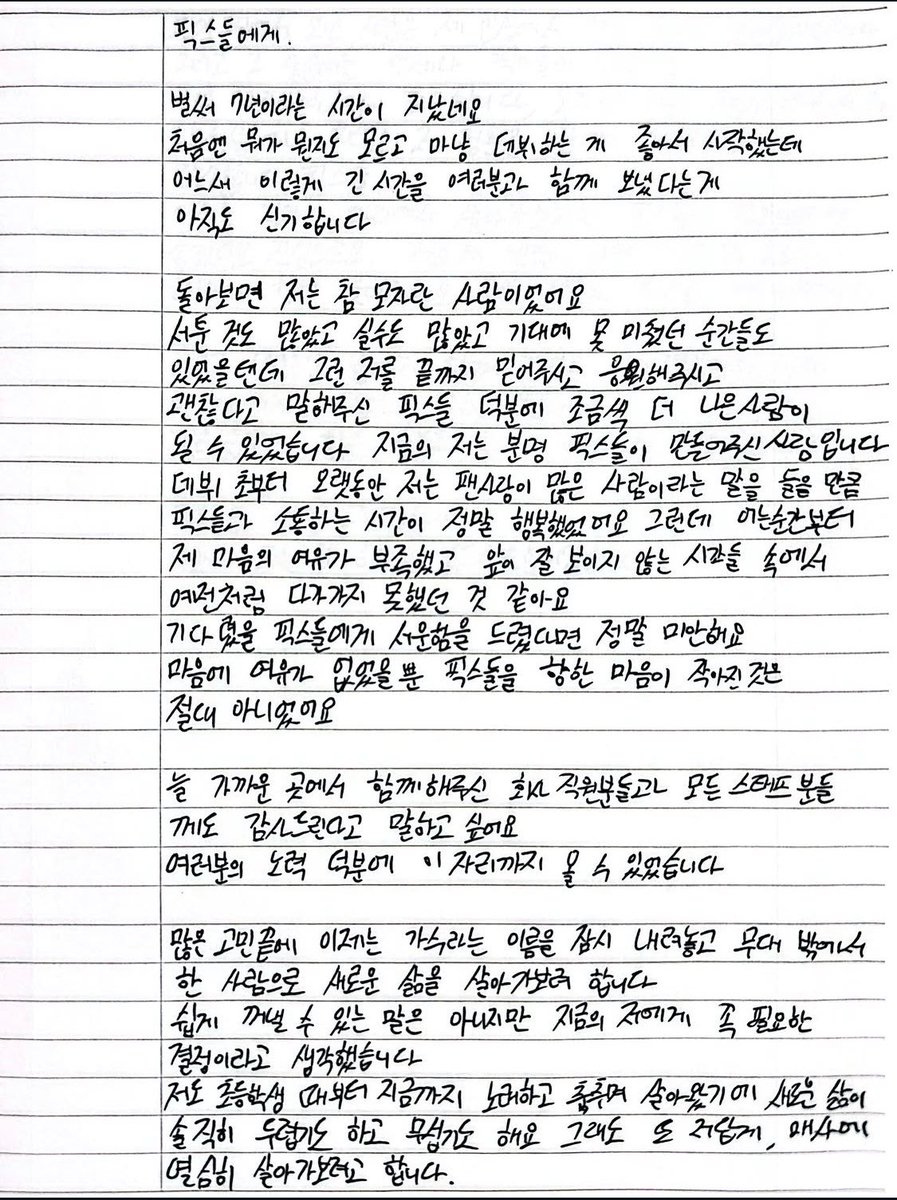 픽스들에게.
벌써 7년이라는 시간이 지났네요
처음엔 뭐가 뭔지도 모르고 마냥 데뷔하는 게 좋아서 시작했는데
어느새 이렇게 긴 시간을 여러분과 함께 보냈다는게
아직도 신기합니다
돌아보면 저는 참 모자란 사람이었어요
서툰 것도 많았고 실수도 많았고 기대에 못 미쳤던 순간들도
있었을텐데 그런 저를 끝까지 믿어주시고 응원해주시고
괜찮다고 말해주신 픽스들 덕분에 조금씩 더 나은사람이
될 수 있었습니다 지금의 저는 분명 픽스들이 만들어주신사람입니다
데뷔 초부터 오랫동안 저는 팬사랑이 많은 사람이라는 말을 들을 만큼
픽스들과 소통하는 시간이 정말 행복했었어요 그런데 어는순간부터
제 마음의 여유가 부족했고 앞이 잘 보이지 않는 시간들 속에서
예전처럼 다가가지 못했던 것 같아요
기다렸을 픽스들에게 서운함을 드렸다면 정말 미안해요
마음에 여유가 없었을 뿐 픽스들을 향한 마음이 작아진것은
절대 아니었어요
늘 가까운 곳에서 함께해주신 회사 직원분들과 모든 스태프 분들
께도 감사드린다고 말하고 싶어요
여러분의 노력 덕분에 이 자리까지 올 수 있었습니다
많은 고민끝에 이제는 가수라는 이름을 잠시 내려놓고 무대 밖에서
한 사람으로 새로운 삶을 살아가보려 합니다
쉽게 꺼낼 수 있는 말은 아니지만 지금의 저에게 꼭 필요한
결정이라고 생각했습니다
저도 초등학생 때부터 지금까지 노래하고 춤추며 살아왔기에 새로운 삶이
솔직히 두렵기도 하고 무섭기도 해요 그래도 또 저답게, 매사에
열심히 살아가보려고 합니다.